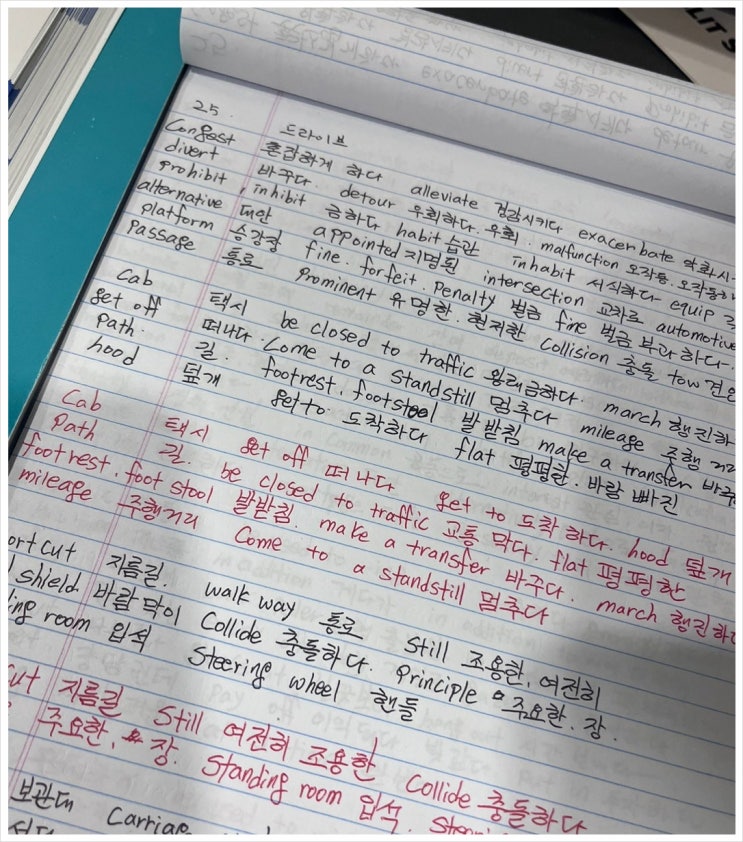 25. 드라이브
Congest 혼잡하게 하다 alleviate 경감시키다 exacerbate 악화시
divert 바꾸다. detour 우회하다. 우회. malfunction 오작동. 오작동하
prohibit, inhibit 금하다 habit 습관 inhabit 서식하다 equip
alternative 대안 appointed 지명된 intersection 교차로 automotive
platform 승강장 fine. forfeit. penalty 벌금 fine 벌금 부과하다.
passage 통로 prominent 유명한. 현저한 collision 충돌 tow 견인
Cab 택시 be closed to traffic 왕래금하다. march 행진하
get off 떠나다. Come to a standstill 멈추다 mileage 주행 거
path. 길. footrest. footstool 발받침 make a transfer 바꾸
hood 덮개 get to 도착하다 flat 평평한. 바람 빠진
Cab 택시 get off 떠나다 get to 도착하다. hood 덮개
Path 길. be closed to traffic 교통 막다. flat 평평한
footrest. foot stool 발받침. make a transfer 바꾸다. march 행진하다
mileage 주행거리 Come to a standstill 멈추다
ort cut 지름길. walk way 통로 Still 조용한, 여전히
shield 바람막이 Collide 충돌하다. principle 주요한. 장.
ing room 입석 Steering wheel 핸들
cut 지름길 Still 여전히 조용한 Collide 충돌하다
주요한. 장. Standing room 입석.
보관대